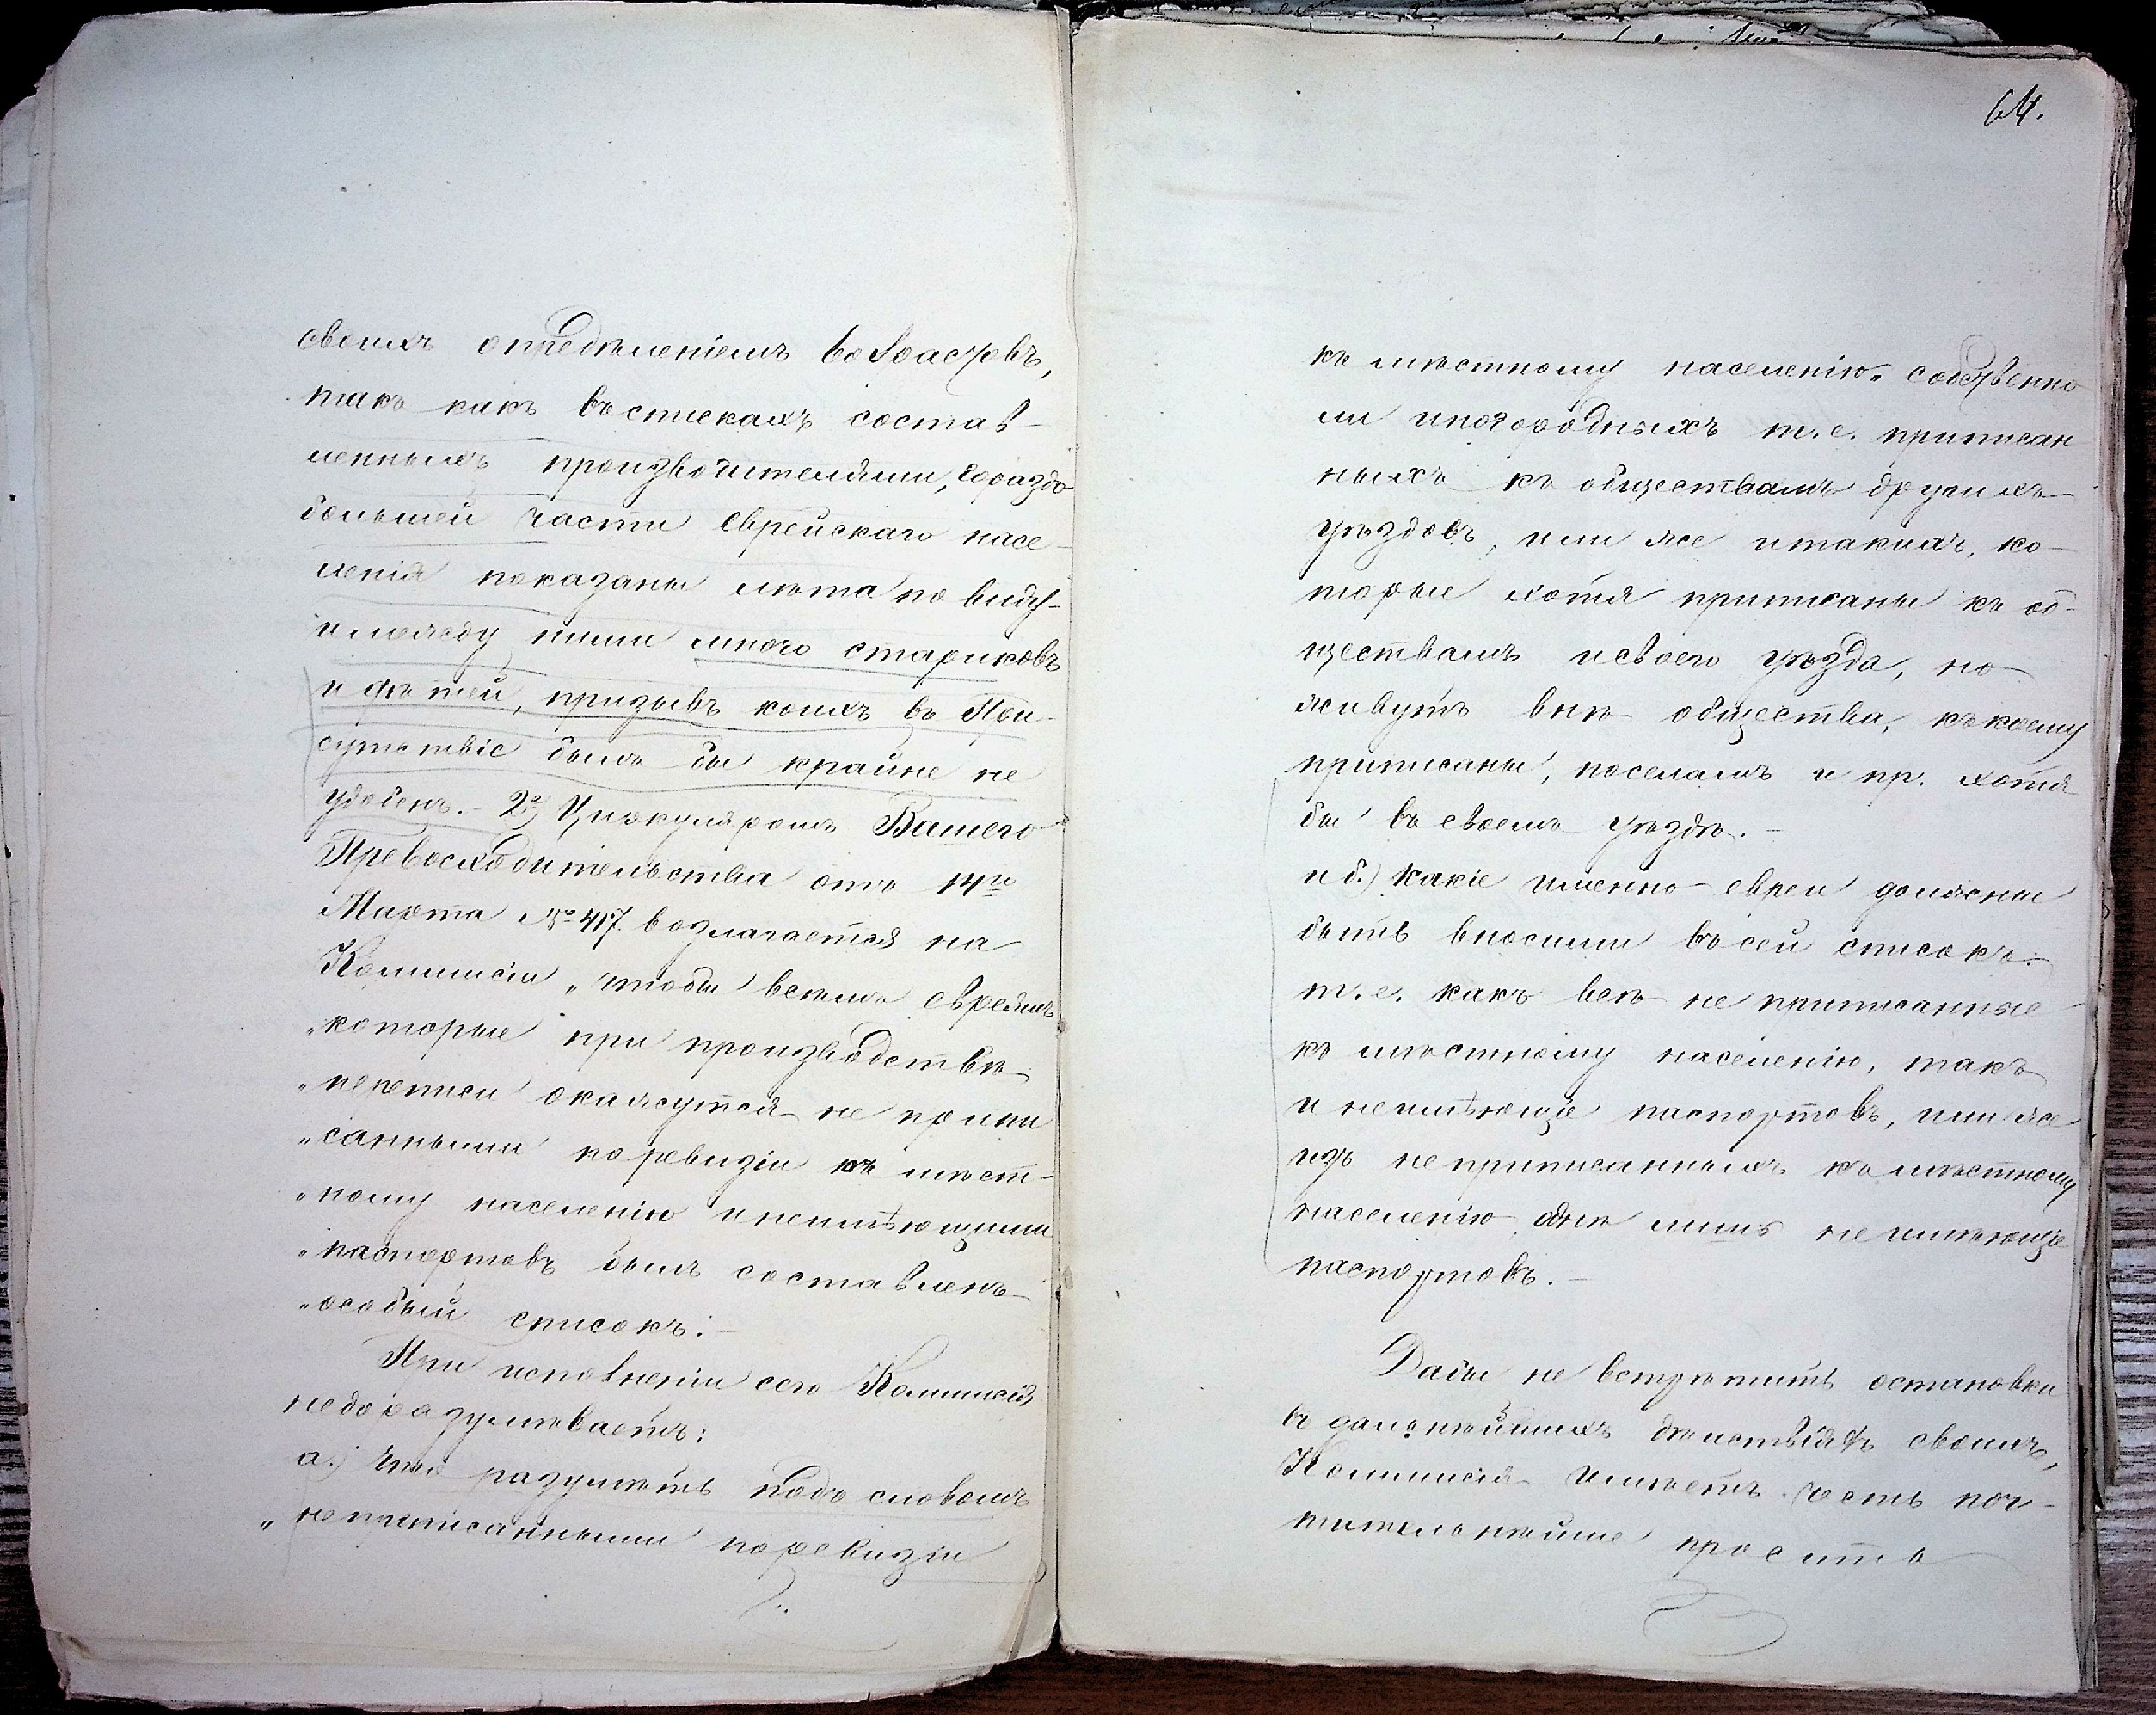 своихъ опредѣленіемъ возрастовъ,
такъ какъ въ спискахъ состав-
ленныхъ производителями, гораздо
большей части Еврейскаго насе-
ленія показаны лѣта по виду-
и между ними много стариковъ
и дѣтей, призывъ коихъ въ При-
сутствіе былъ бы крайне не
удобенъ. - 2е) Циркуляромъ Вашего
Превосходительства отъ 14го
Марта № 417 возлагается на
Коммисіи „чтобы всѣмъ евреямъ
„которые при производствѣ
„переписи окажутся не припи
„санными по ревизіи къ мѣст-
„ному населенію и неимѣющими
„паспортовъ былъ составленъ
„особый списокъ.-
При исполненіи сего Коммисія
недоразумѣваетъ:
а.) что разумѣть подъ словомъ
„не приписанными по ревизіи
64.
къ мѣстному населенію„ собственно
ли иногородныхъ т.е. приписан
ныхъ къ обществамъ другихъ
уѣздовъ, или же и такихъ, ко-
торые хотя приписаны къ об-
ществамъ и своего уѣзда, но
живутъ внѣ общества, къ коему
приписаны, поселамъ и пр. хотя
бы въ своемъ уѣздѣ.-
и б.) какіе именно евреи должны
быть вносимы въ сей списокъ:
т.е. какъ всѣ не приписанные
къ мѣстному населенію, такъ
и неимѣющіе паспортовъ, или же
изъ не приписанныхъ къ мѣстному
населенію однѣ лишь не имѣющіе
паспортовъ.-
Дабы не встрѣтить остановки
въ дальнѣйшихъ дѣйствіяхъ своихъ,
Коммисія имѣетъ честь поч-
тительнѣйше просить